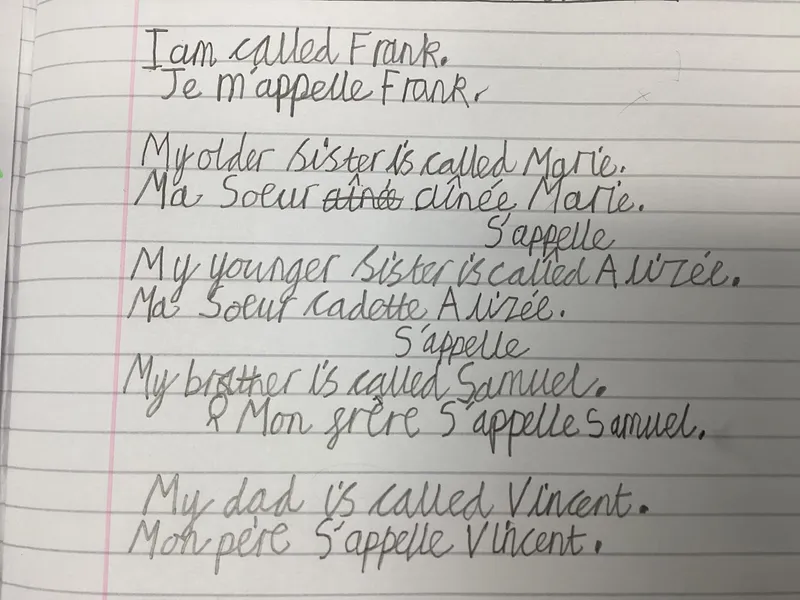 I am called Frank.
Je m'appelle Frank.
My older sister is called Marie.
Ma Soeur aînée aînée Marie.
S'appelle
My younger sister is called Alizée.
Ma Soeur cadette Alizée.
S'appelle
My brother is called Samuel.
Mon frère S'appelle Samuel.
My dad is called Vincent.
Mon père S'appelle Vincent.